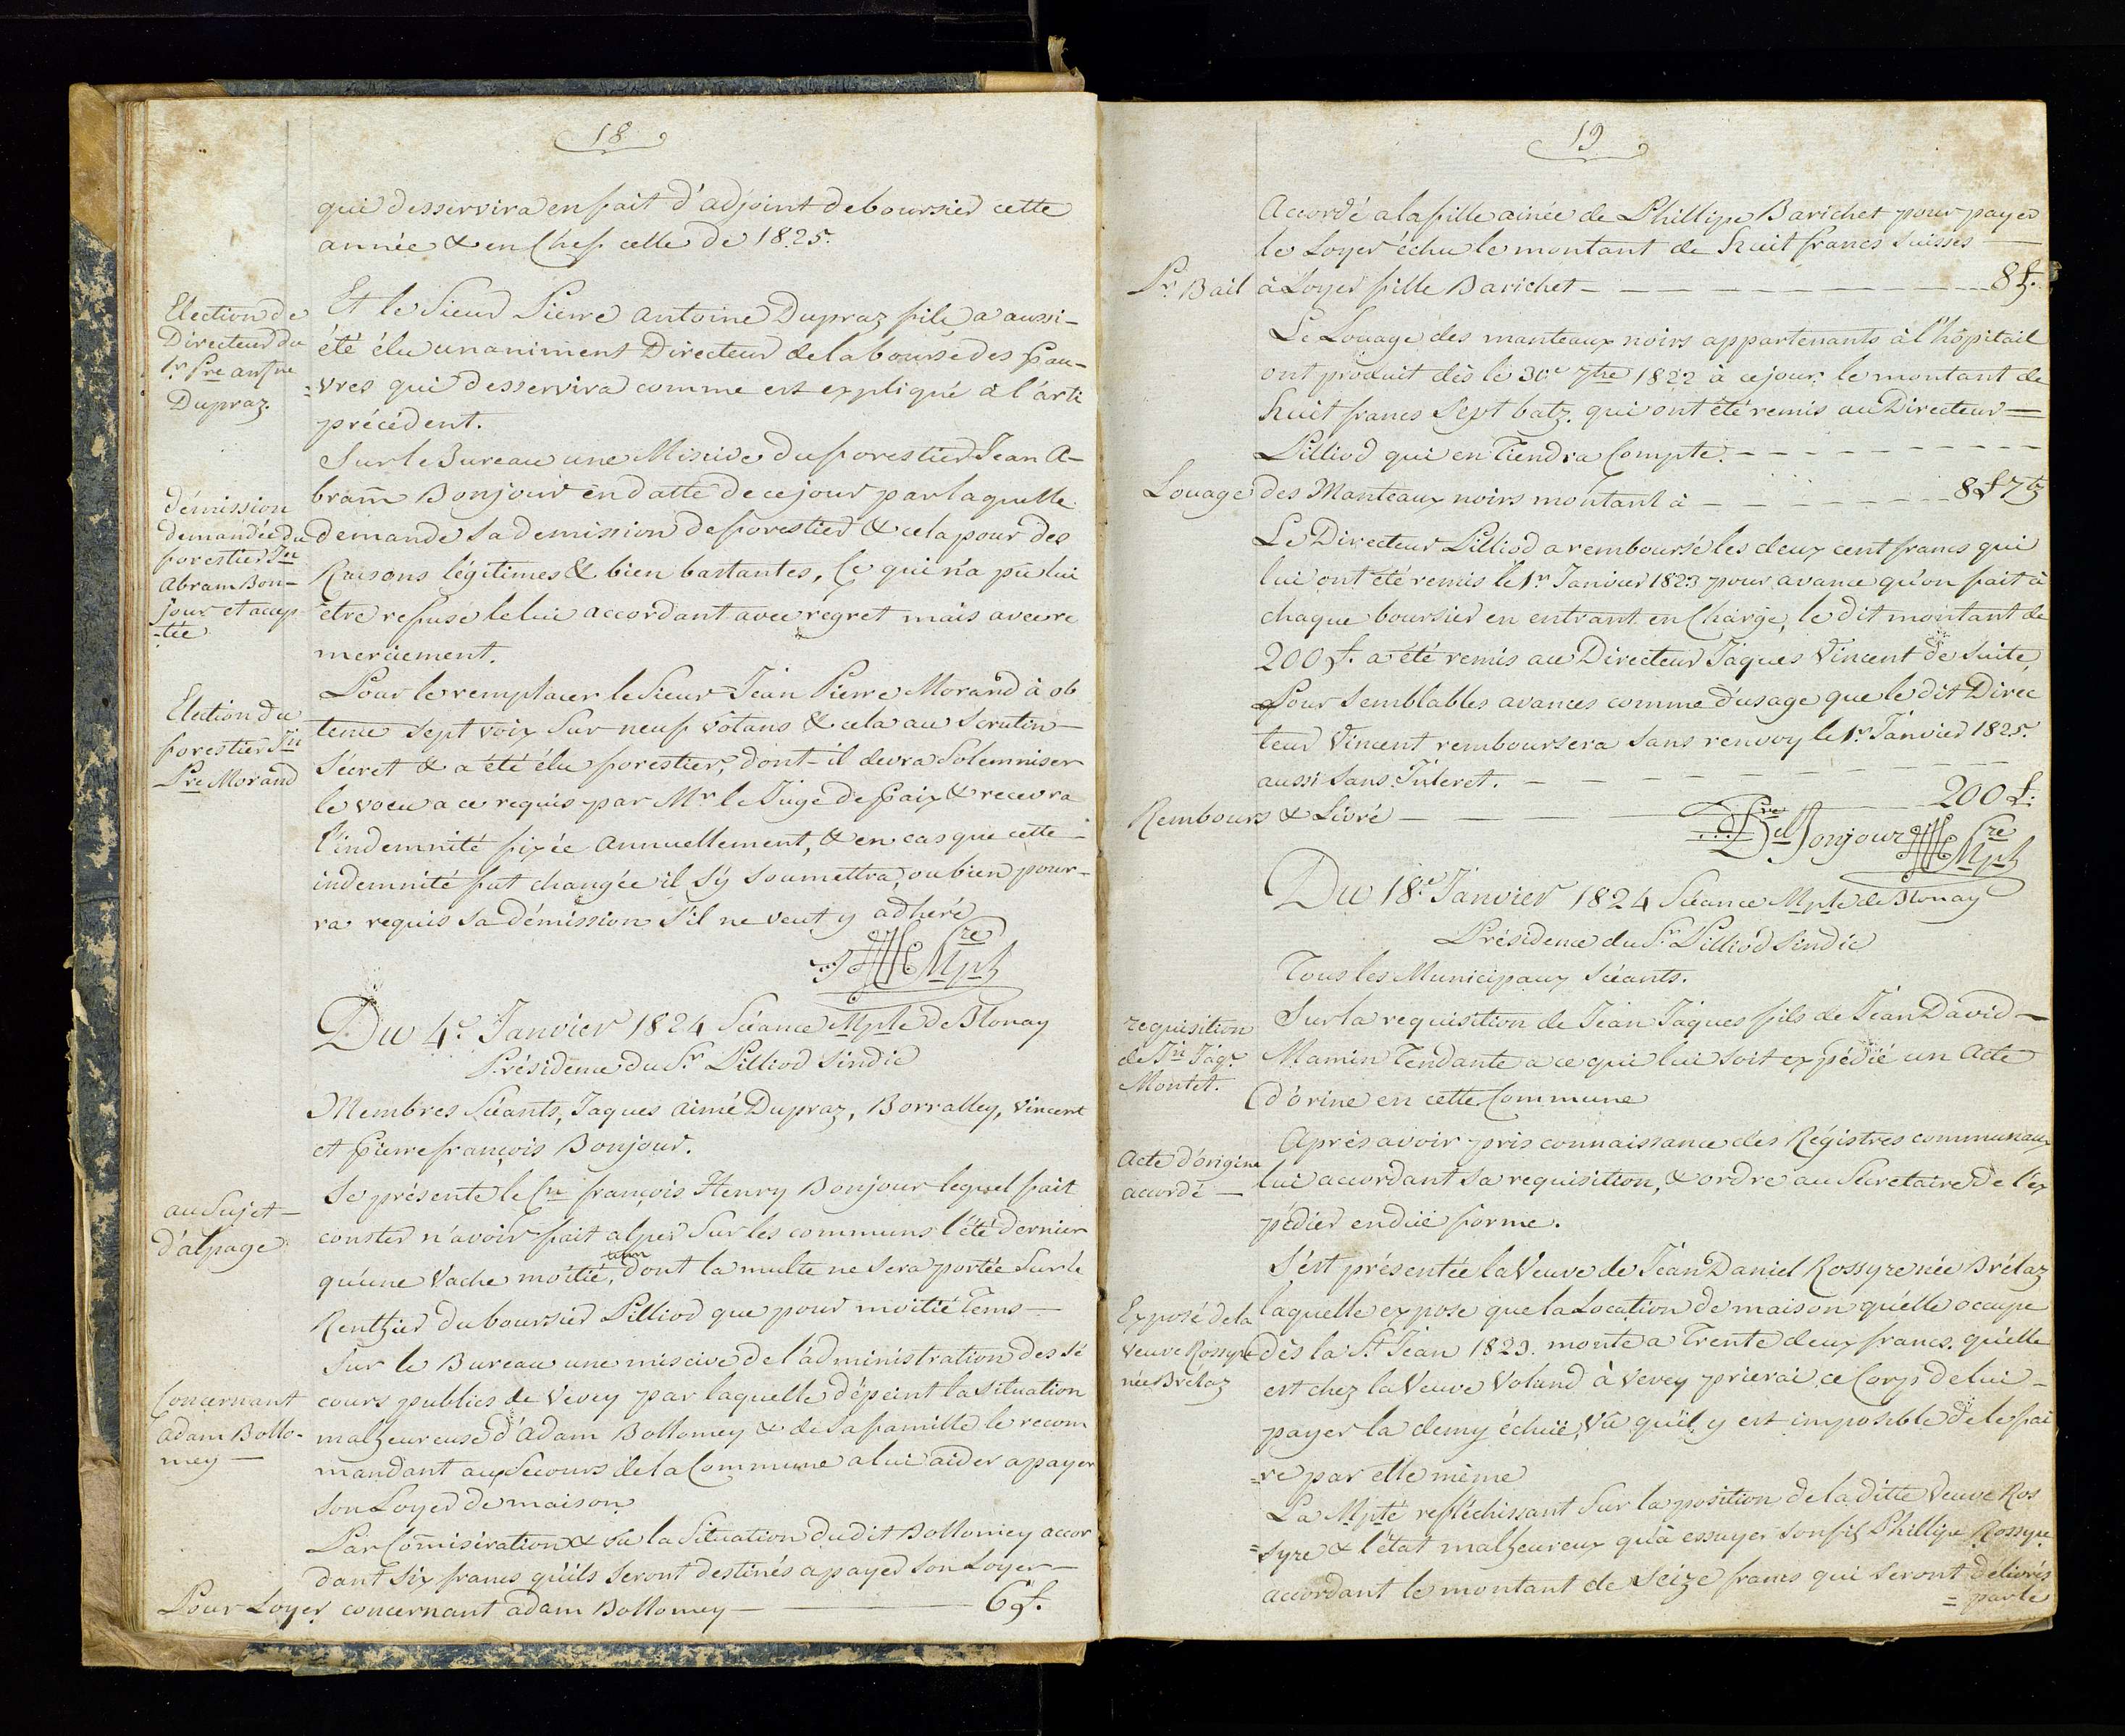 18
qui desservira en fait d'adjoint de boursier cette
année & en Chef celle de 1825.
Election de
Directeur du
Sr. Pre antne
Dupraz.
Et le Sieur Pierre Antoine Dupraz fils, a aussi-
été élu unaniment Directeur de la bourse des Pau-
=vres qui desservira comme est expliqué à l'arti
précédent.
démission
demandée du
forestier Jn
Abram Bon-
jour et accep
-tée
Sur le Bureau une Miscive du forestier Jean A-
bram Bonjour en datte de ce jour par laquelle
demande sa demission de forestier & cela pour des
Raisons légitimes & bien bastantes, Ce qui n'a pû lui
être refusé le lui accordant avec regret mais avec re
merciement.
Election du
forestier Jn
Pre Morand
Pour le remplacer le Sieur Jean Pierre Morand à ob
tenu sept voix Sur neuf votans & cela au Scrutin
Sécret & a été élu forestier, dont-il devra Solemniser
le voeu a ce requis par Mr le Juge de Paix & recevra
l'indemnité fixée annuellement, & en cas que cette
indemnité fut changée il s'y soumettra, ou bien pour-
ra requis sa démission s'il ne veut y adheré
Cre Mpl
Du 4e. Janvier 1824 Séance Mple de Blonay
Présidence du Sr Pilliod Sindic
Membres Séants, Jaques aimé Dupraz, Borralley, Vincent
et Pierre françois Bonjour.
au Sujet
d'alpage
Se présente le Cn françois Henry Bonjour lequel fait
conster n'avoir fait alper Sur les communs l'été dernier
qu'une Vache moitié tems, dont la multe ne sera portée Sur le
Renthier du boursier Pilliod que pour moitié Tems
Concernant
adam Bollo-
mey
Sur le Bureau une miscive de l'administration des Sé
cours publics de Vevey par laquelle dépeint la situation
malheureuse d'adam Bollomey & de sa famille le recom
mandant aux Secours de la Commune a lui aider a payer
son Loyer de maison
Par Comisération & vû la Situation dudit Bollomey accor
dant Six francs qu'ils seront destinés a payer son Loyer
Pour Loyer concernant adam Bollomey 6 f.
19
Accordé a la fille ainée de Phillipe Barichet pour payer
le Loyer échu le montant de huit francs suisses
Pr. Bail à Loyer fille Barichet 8 f.
Le Louage des manteaux noirs appartenants à l'hôpitail
ont produit dès le 30e 7bre 1822 à ce jour le montant de
huit francs Sept batz. qui ont été remis au Directeur
Pilliod qui en Tiendra Compte.
Louage des Manteaux noirs montant à 8 f 7 bz
Le Directeur Pilliod a remboursé les deux cent francs qui
lui ont été remis le 1r Janvier 1823 pour avance qu'on fait à
chaque boursier en entrant en Charge, le dit montant de
200 f. a été remis au Directeur Jaques Vincent de Suite
Pour Semblables avances comme d'usage que le dit Direc
teur Vincent remboursera sans renvoy le 1r Janvier 1825.
aussi sans Interet.
Rembours & Livré 200 f.
Bonjour Cre Mpl
Du 18e Janvier 1824 Séance Mple de Blonay
Présidence du Sr. Pilliod Sindic
Tous les Municipaux Séants.
requisition
de Jn Jaqs
Montet.
Sur la requisition de Jean Jaques fils de Jean David
Mamin Tendante a ce que lui soit expédié un Acte
d'orine en cette Commune
Acte d'origine
accordé
Après avoir pris connaissance des Régistres communaux
lui accordant sa requisition, & ordre au Secretaire de l'ex
pédier en düe forme.
Exposé de la
veuve Rossyre
née Brélaz
S'est présentée la Veuve de Jean Daniel Rossyre née Brélaz
laquelle expose que la Location de maison qu'elle occupe
dès la St Jean 1823. monte a Trente deux francs. qu'elle
est chez la Veuve Voland à Vevey prierai ce Corps de lui
payer la demy échüe, Vû qu'il y est imposible de le fai
=re par elle même
La Mpté refléchissant Sur la position de la ditte Veuve Ros
=syre & l'état malheureux qu'à essuyer son fils Phillipe Rossyre
accordant le montant de Seize francs qui seront délivrés
= par le